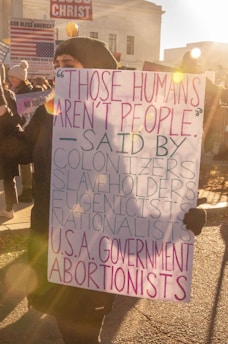 BLESS
CHRIST
GOD BLESS AMERICA
"THOSE HUMANS
AREN'T PEOPLE."
— SAID BY
COLONIZERS
SLAVEHOLDERS
EUGENICISTS
NATIONALISTS
U.S.A. GOVERNMENT
ABORTIONISTS